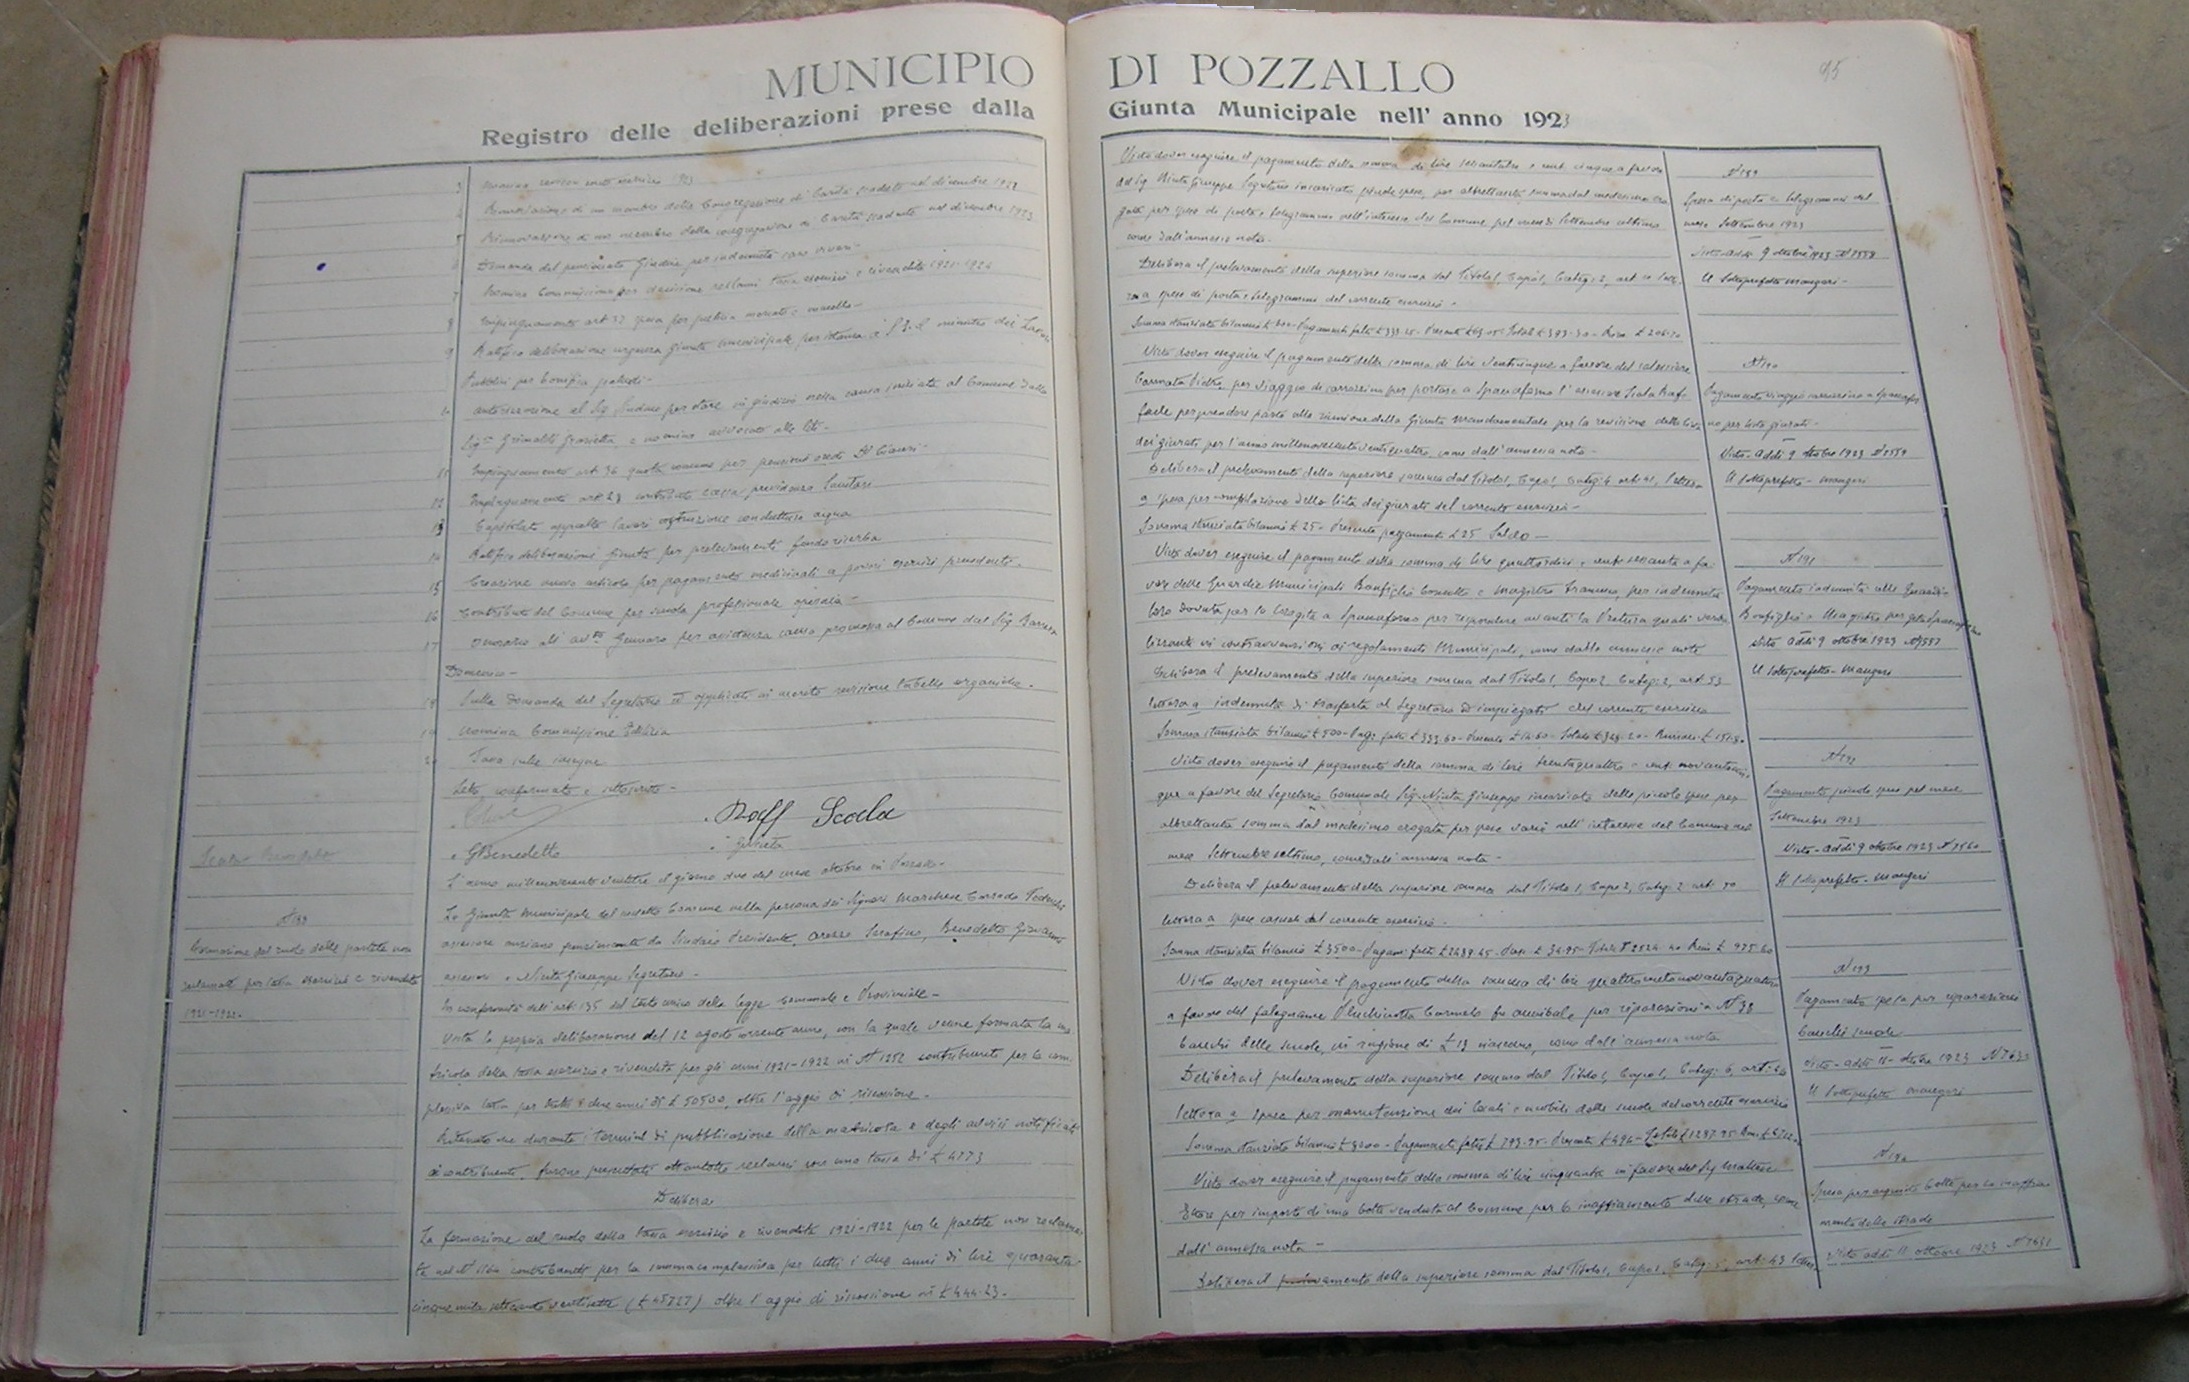 MUNICIPIO
Registro delle deliberazioni prese dalla
3 Nomina revisori conto esercizio 1923
Rinnovazione di un membro della Congregazione di Carità scaduto nel dicembre 1922
5 Rinnovazione di un membro della congregazione di Carità scaduto nel dicembre 1923
6 Domanda del pensionato Giudice per indennità caro viveri-
7 Nomina Commissione per decisione reclami tassa esercizi e rivendite 1921-1922
8 Impinguamento art 37 spesa per pubblico mercato e macello-
9 Ratifica deliberazione urgenza Giunta Municipale per istanza a S. E. il ministro dei Lavori
Pubblici per bonifica paludi-
10 autorizzazione al Sig Sindaco per stare in giudizio nella causa iniziata al Comune dalla
Sigra Grimaldi Graziella e nomina avvocato alle liti-
11 Impinguamento art 36 quota comune per pensione eredi
12 Impinguamento art 23 contributo cassa previdenza Sanitari
13 Capitolato appalto lavori costruzione conduttura acqua
14 Ratifica deliberazioni Giunta per prelevamenti fondo riserba
15 Creazione nuovo articolo per pagamento medicinali a poveri esercizi precedenti.
16 Contributo del Comune per scuola professionale operaia-
17 Onorario all' avvto Gennaro per assistenza causa promossa al Comune dal Sig Barrera
Domenico-
18 Sulla domanda del Segretario ed applicati in merito revisione tabella organica.
19 Nomina Commissione Edilizia
20 Tassa sulle insegne
Letto confermato e sottoscritto-
Raff Scala
GBenedetto
GNiuta
L'anno millenovecentoventitre il giorno due del mese ottobre in Pozzallo-
La Giunta Municipale del suddetto Comune nella persona dei Signori Marchese Corrado Tedeschi
assessore anziano funzionante da Sindaco Presidente, Arezzo Serafino, Benedetto Giovanni
assessori e Niuta Giuseppe Segretario-
In conformità dell'art. 135 del testo unico della legge Comunale e Provinciale-
N 188
Formazione del ruolo delle partite non
reclamate per tassa esercizi e rivendite
1921-1922-
Vista la propria deliberazione del 12 agosto corrente anno, con la quale venne formata la ma
tricola della tassa esercizio e rivendita per gli anni 1921-1922 in N 1252 contribuenti per la com
plessiva tassa per tutti i due anni di £ 50500, oltre l'aggio di riscossione-
Ritenuto che durante i termini di pubblicazione della matricola e degli avvisi notificati
ai contribuenti, furono presentati ottantotto reclami con una tassa di £ 4773
Delibera
La formazione del ruolo della tassa esercizio e rivendita 1921-1922 per le partite non reclama
te nel N 1164 contribuenti per la somma complessiva per tutti i due anni di lire quaranta
cinque mila settecento ventisette (£ 45727) oltre l'aggio di riscossione in £ 444.23.
DI POZZALLO
Giunta Municipale nell' anno 1923
95
Visto dover eseguire il pagamento della somma di lire sessantatre e cent. cinque a favore
del Sig Niuta Giuseppe Segretario incaricato piccole spese, per altrettanta somma dal medesimo ero
gata per spese di posta e telegrammi nell'interesse del Comune pel mese di Settembre ultimo
come dall'annessa nota-
N 189
Spesa di posta e telegrammi del
mese Settembre 1923
Visto-addì 9 ottobre 1923 N 7558
Il Sottoprefetto Mangeri-
Delibera il prelevamento della superiore somma dal Titolo I, Capo I, Categ. 2, art 10 lette
ra a spese di posta e telegrammi del corrente esercizio-
Somma stanziata bilancio £ 600- Pagamenti fatti £ 333.25- Presente £ 63.05-
Visto dover eseguire il pagamento della somma di lire venticinque a favore del calessiere
Carmata Pietro, per viaggio di carrozzino per portare a Spaccaforno l'assessore Scala Raf-
faele per prendere parte alla riunione della Giunta Mandamentale per la revisione della lista
dei giurati per l'anno millenovecentoventiquattro, come dall'annessa nota-
N 190
Pagamento viaggio carrozzino a Spaccafor
no per lista giurati-
Visto-addì 9 ottobre 1923 N 7559
Il Sottoprefetto-Mangeri
Delibera il prelevamento della superiore somma dal Titolo I, Capo I, Categ. 4 art. 41, lettera
a spesa per compilazione della lista dei giurati del corrente esercizio-
Somma stanziata bilancio £ 25- Presente pagamento £ 25 Saldo-
Visto dover eseguire il pagamento della somma di lire quattordici e cent. sessanta a fa-
vore delle Guardie Municipali Bonfiglio Concetto e Magistro Francesco, per indennità
loro dovuta per la trasferta a Spaccaforno per rispondere avanti la Pretura quali verba
lizzanti in contravvenzioni ai regolamenti Municipali, come dalle annesse note
N 191
Pagamento indennità alle Guardie
Bonfiglio e Magistro per gita Spaccaforno
Visto addì 9 ottobre 1923 N 7557
Il Sottoprefetto-Mangeri
Delibera il prelevamento della superiore somma dal Titolo I, Capo 2, Categ. 2, art. 53
lettera a indennità di trasferta al Segretario ed impiegati del corrente esercizio
Visto dover eseguire il pagamento della somma di lire trentaquattro e cent. novantacin
que a favore del Segretario Comunale Sig. Niuta Giuseppe incaricato delle piccole spese per
altrettanta somma dal medesimo erogata per spese varie nell'interesse del Comune nel
mese Settembre ultimo, come dall'annessa nota-
N 192
Pagamento piccole spese pel mese
Settembre 1923
Visto-addì 9 ottobre 1923 N 7560
Il Sottoprefetto-Mangeri
Delibera il prelevamento della superiore somma dal Titolo I, Capo 2, Categ. 2 art. 70
lettera a spese casuali del corrente esercizio-
Somma stanziata bilancio £ 3500- Pagam. fatti £ 2489.45- Pres. £ 34.95- Totale £ 2524.40 Rim £ 975.60
Visto dover eseguire il pagamento della somma di lire quattrocentonovantaquattro
a favore del falegname Pluchinotta Carmelo fu Annibale per riparazioni a N 38
banchi delle scuole, in ragione di £ 13 ciascuno, come dall'annessa nota
N 193
Pagamento spesa per riparazione
banchi scuole
Visto-addì 11 ottobre 1923 N 7632
Il Sottoprefetto Mangeri
Delibera il prelevamento della superiore somma dal Titolo I, Capo I, Categ. 6, art. 60
lettera a spese per manutenzione dei locali e mobili delle scuole del corrente esercizio
Visto dover eseguire il pagamento della somma di lire cinquanta in favore del Sig Maltese
Ettore per importo di una botte venduta al Comune per l'innaffiamento delle strade, come
dall'annessa nota-
N 194
Spesa per acquisto botte per la innaffia
mento delle strade
Visto addì 11 ottobre 1923 N 7631
Delibera il prelevamento della superiore somma dal Titolo I, Capo I, Categ. 5, art. 43 lettera